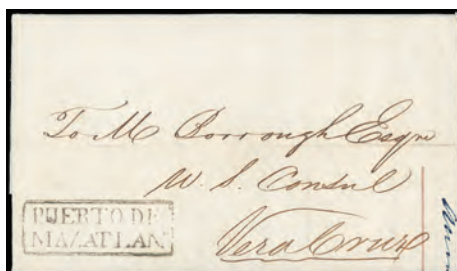 To M Borrough Esqr
U. S. Consul
Vera Cruz
PUERTO DE
MAZATLAN